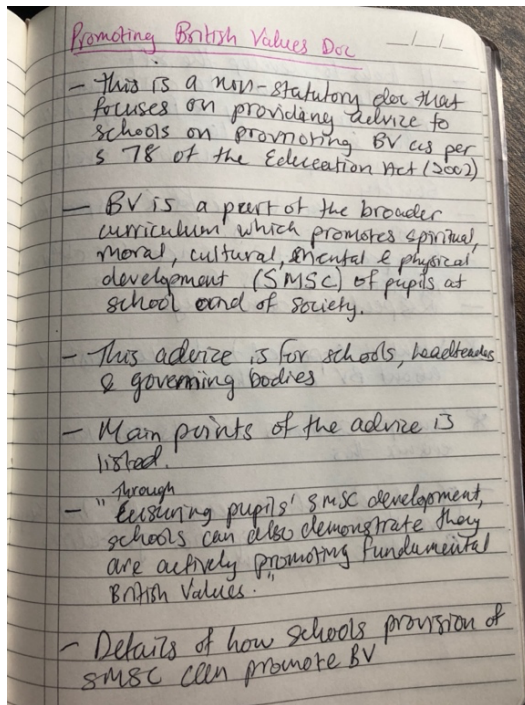 Promoting British Values Doc
_/_/_
- This is a non-statutory doc that
focuses on providing advize to
schools on promoting BV as per
s 78 of the Education Act (2002)
- BV is a part of the broader
curriculum which promotes spiritual,
moral, cultural, mental & physical
development (SMSC) of pupils at
school and of society.
- This advize is for schools, headteachers
& governing bodies
- Main points of the advize is
listed.
through
- "Ensuring pupils' SMSC development,
schools can also demonstrate they
are actively promoting fundamental
British Values."
- Details of how schools provision of
SMSC can promote BV